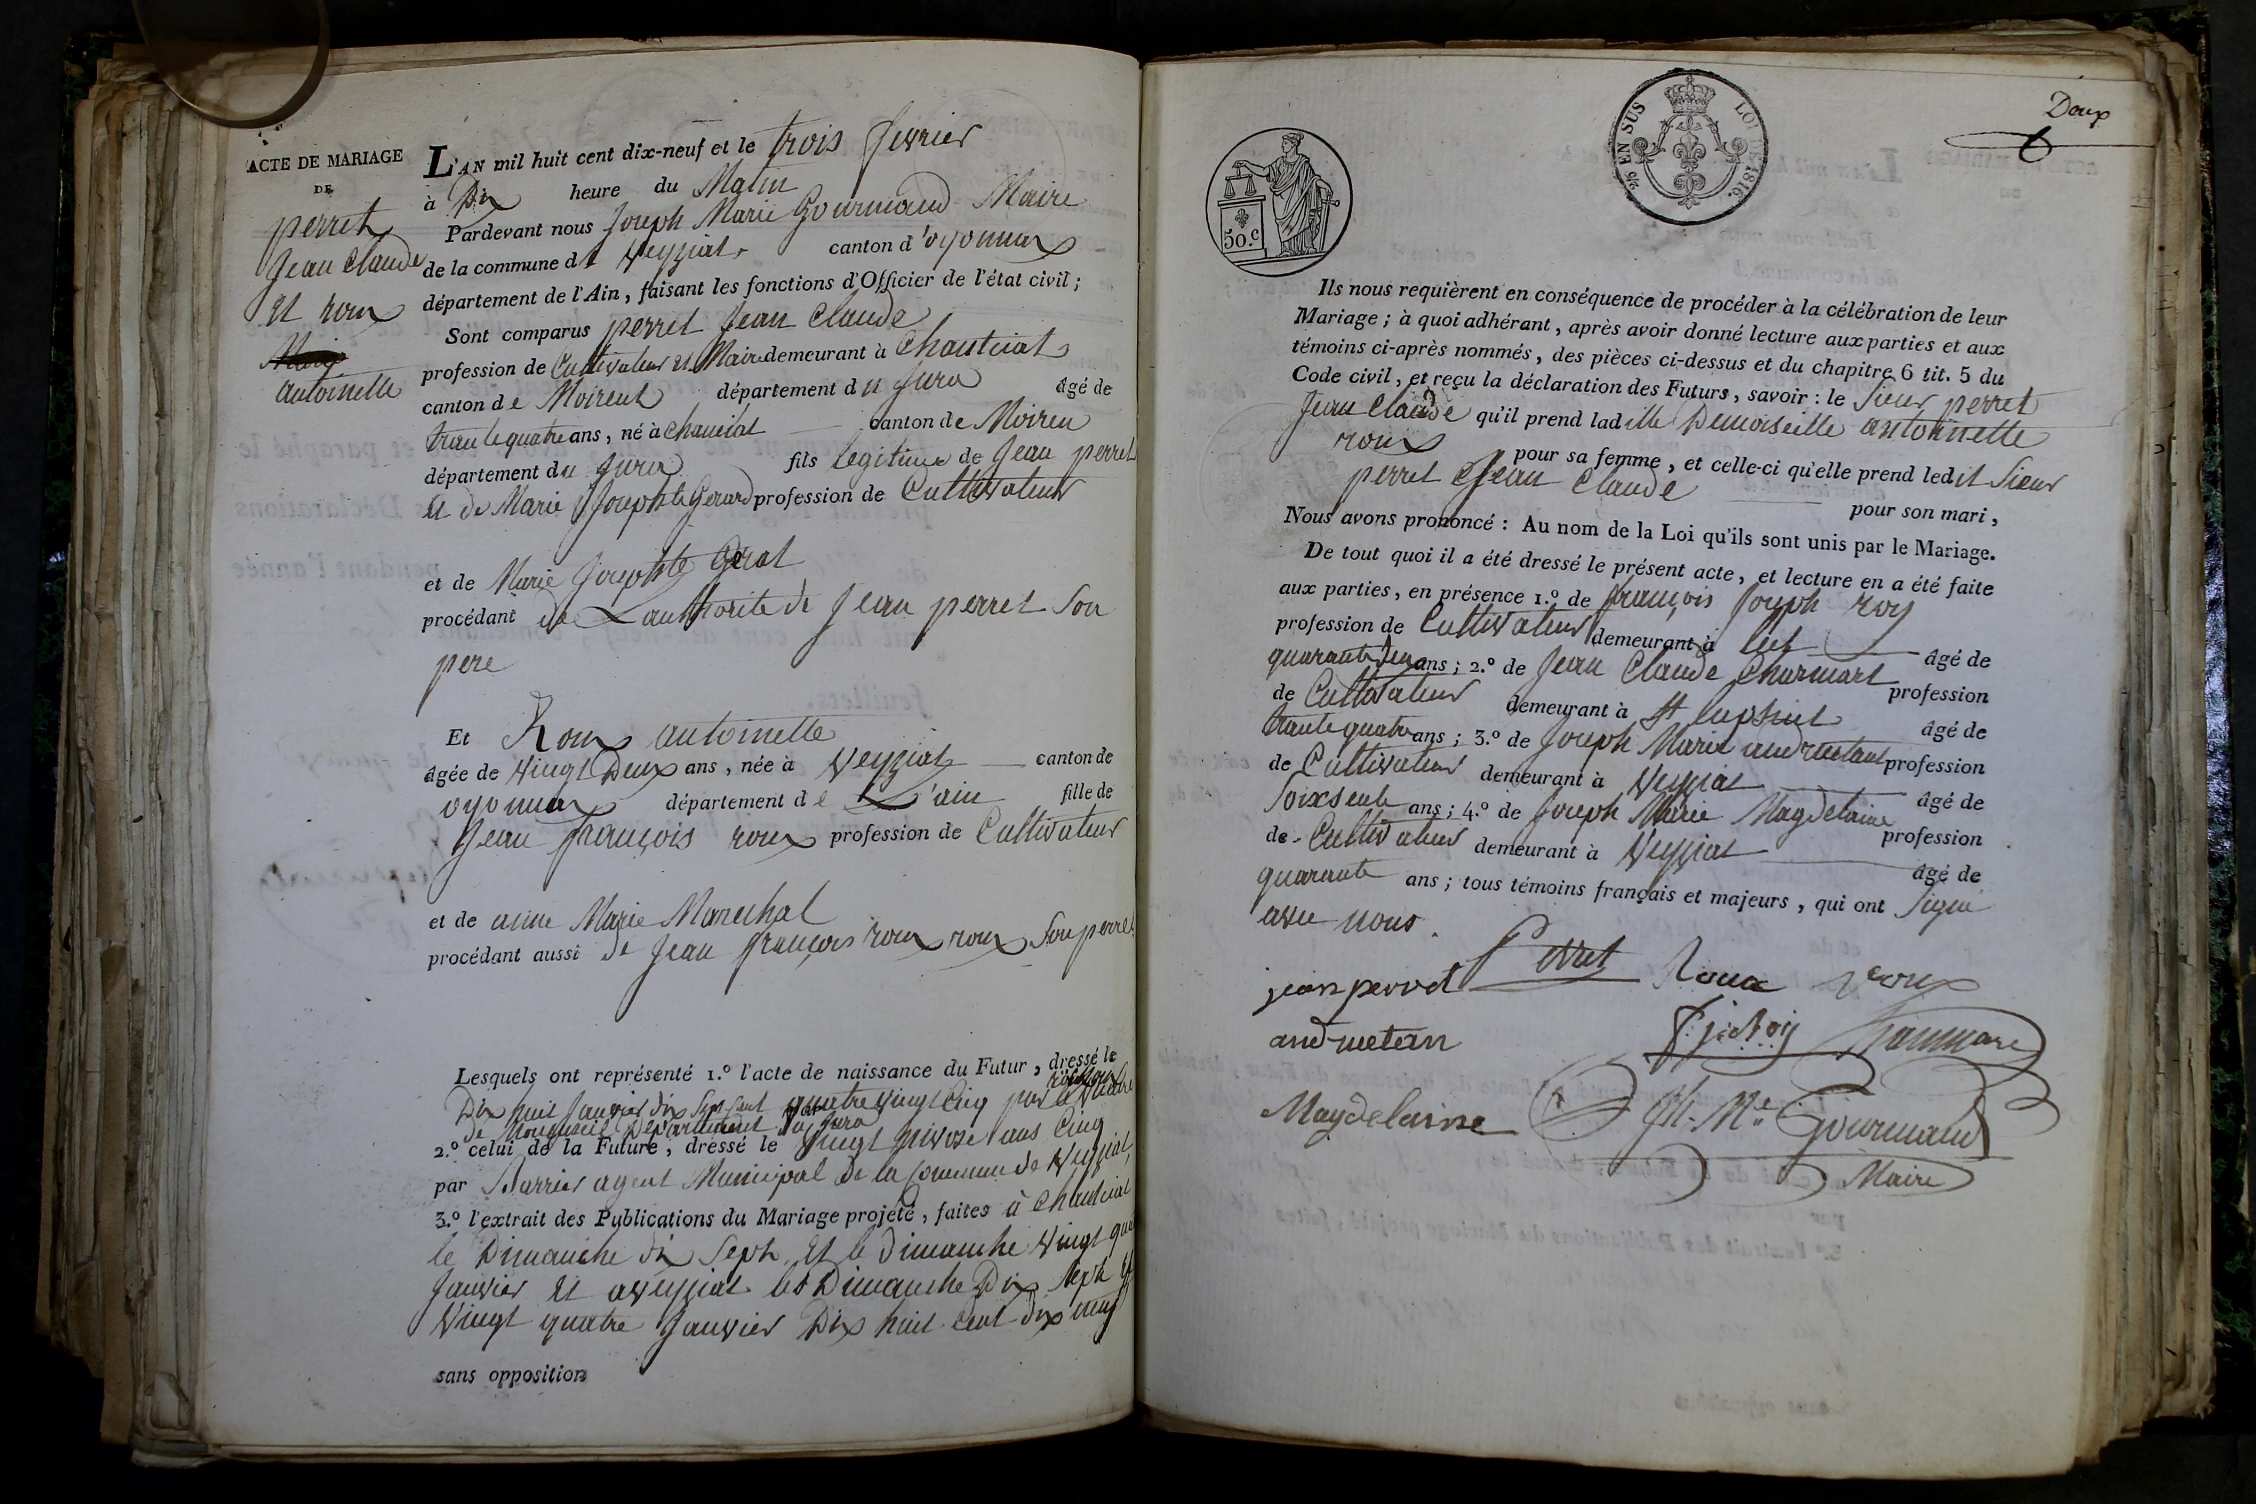 ACTE DE MARIAGE
DE
perret
Jean Claude
et roux
antoinette
L'AN mil huit cent dix-neuf et le trois fevrier
à Dix heure du Matin
Pardevant nous Joseph Marie Gourmand Maire
de la commune de Veyziat canton d'oyonnax
département de l'Ain, faisant les fonctions d'Officier de l'état civil;
Sont comparus perret Jean Claude
profession de Cultivateur et Maire demeurant à Chanciat
canton de Moirent département du Jura âgé de
trante quatre ans, né à chanciat canton de Moiren
département du Jura fils legitime de Jean perret
et de Marie Josephte Gerard profession de Cultivateur
et de Marie Josephte Girot
procédant de L'authorite de Jean perret Son
pere
Et Roux antoinette
âgée de Vingt Deux ans, née à Veyziat canton de
oyonnax département de L'ain fille de
Jean françois roux profession de Cultivateur
et de anne Marie Marechal
procédant aussi de Jean françois roux roux Son perre
Lesquels ont représenté 1.º l'acte de naissance du Futur, dressé le
Dix huit Janvier dix Sept Cent quatre vingt Cinq par le
de Departement du Jura
2.º celui de la Future, dressé le Vingt nivose ans Cinq
par Barrier agent Municipal de la Commune de Veyziat,
3.º l'extrait des Publications du Mariage projeté, faites à Chanciat
le Dimanche dix Sept et le dimanche Vingt
Janvier et a veyziat les Dimanche Dix Sept et
Vingt quatre Janvier Dix huit Cent dix neuf
sans opposition
2/5 EN SUS
LOI DE 1816.
50.c
Deux
6
Ils nous requièrent en conséquence de procéder à la célébration de leur
Mariage; à quoi adhérant, après avoir donné lecture aux parties et aux
témoins ci-après nommés, des pièces ci-dessus et du chapitre 6 tit. 5 du
Code civil, et reçu la déclaration des Futurs, savoir: le Sieur perret
Jean Claude qu'il prend ladite Demoiselle antoinette
roux pour sa femme, et celle-ci qu'elle prend ledit Sieur
perret Jean Claude pour son mari,
Nous avons prononcé: Au nom de la Loi qu'ils sont unis par le Mariage.
De tout quoi il a été dressé le présent acte, et lecture en a été faite
aux parties, en présence 1.º de françois Joseph roy
profession de Cultivateur demeurant à âgé de
quarante deux ans; 2.º de Jean Claude Charmart profession
de Cultivateur demeurant à St âgé de
trante quatre ans; 3.º de Joseph Marie profession
de Cultivateur demeurant à Veyziat âgé de
Soixsente ans; 4.º de Joseph Marie Magdelaine profession
de Cultivateur demeurant à Veyziat âgé de
quarante ans; tous témoins français et majeurs, qui ont Signe
avec nous.
jean perret Perret Roux roux
and-metan F. j. Roy
Magdelaine Jh. Me. Gourmand
Maire